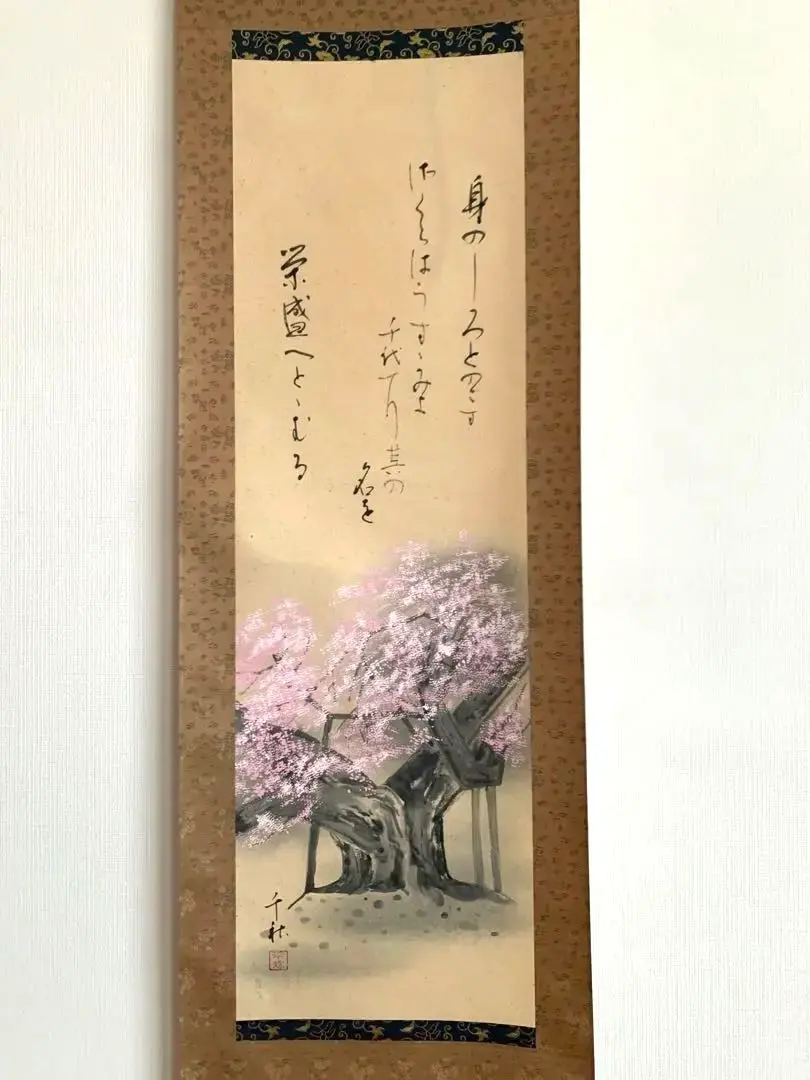 身のしろとのこす
さくらはうすゝみよ
千代に其の
名を
栄盛へとゝむる
千秋